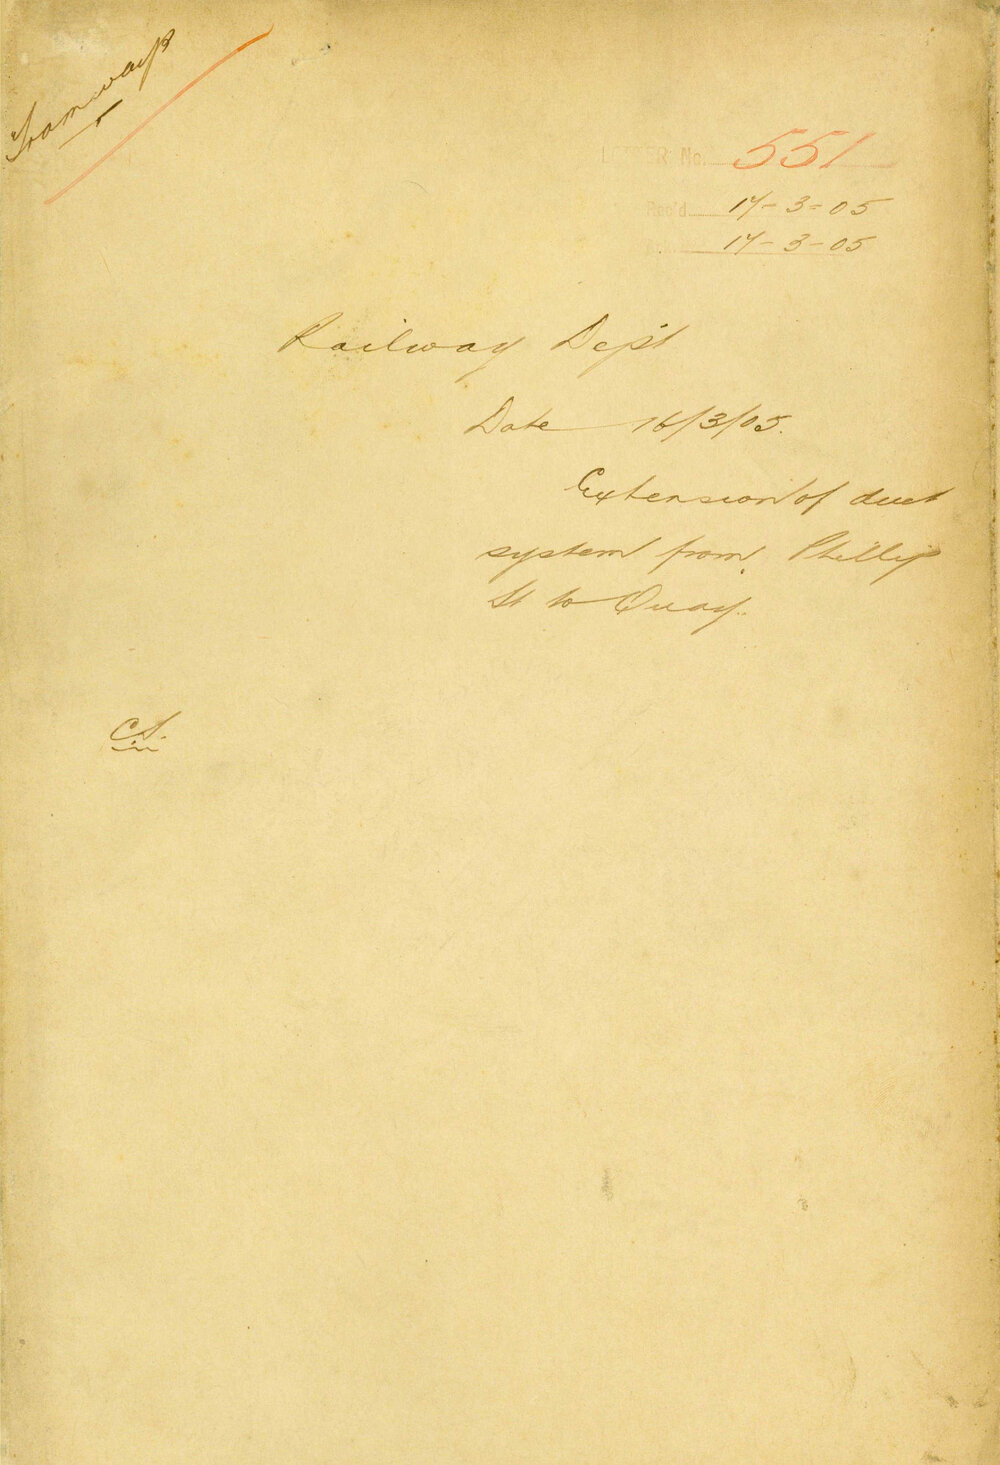 Tramways
LETTER No. 551
Rec'd 17-3-05
17-3-05
Railway Dept
Date 16/3/05.
Extension of duct
system from Phillip
St to Quay.